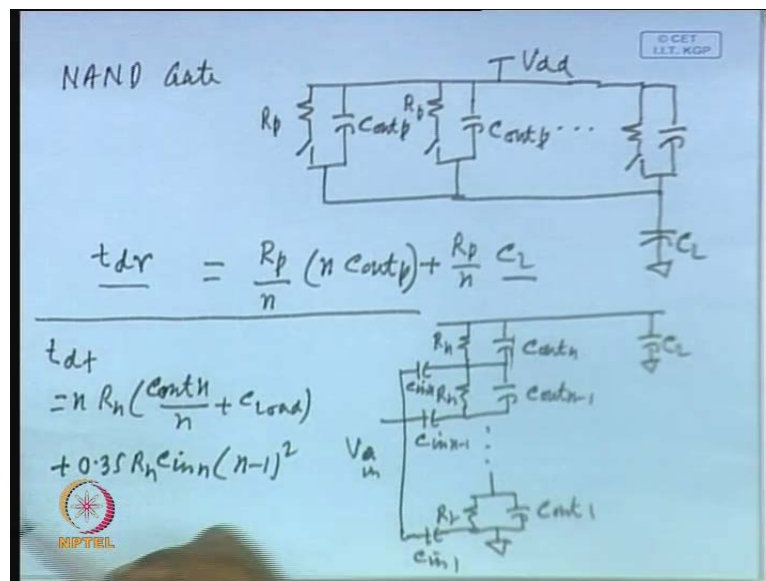 © CET
I.I.T. KGP
NAND Gate
Vdd
Rp
Coutp
Rp
Coutp
...
CL
tdr = Rp/n (n Coutp) + Rp/n CL
tdf
= n Rn (Coutn/n + Cload)
+ 0.35 Rn Cinn (n-1)²
Rn
Coutn
CL
Cinn
Rn
Coutn-1
Cinn-1
Vin
Cout1
Cin1
NPTEL